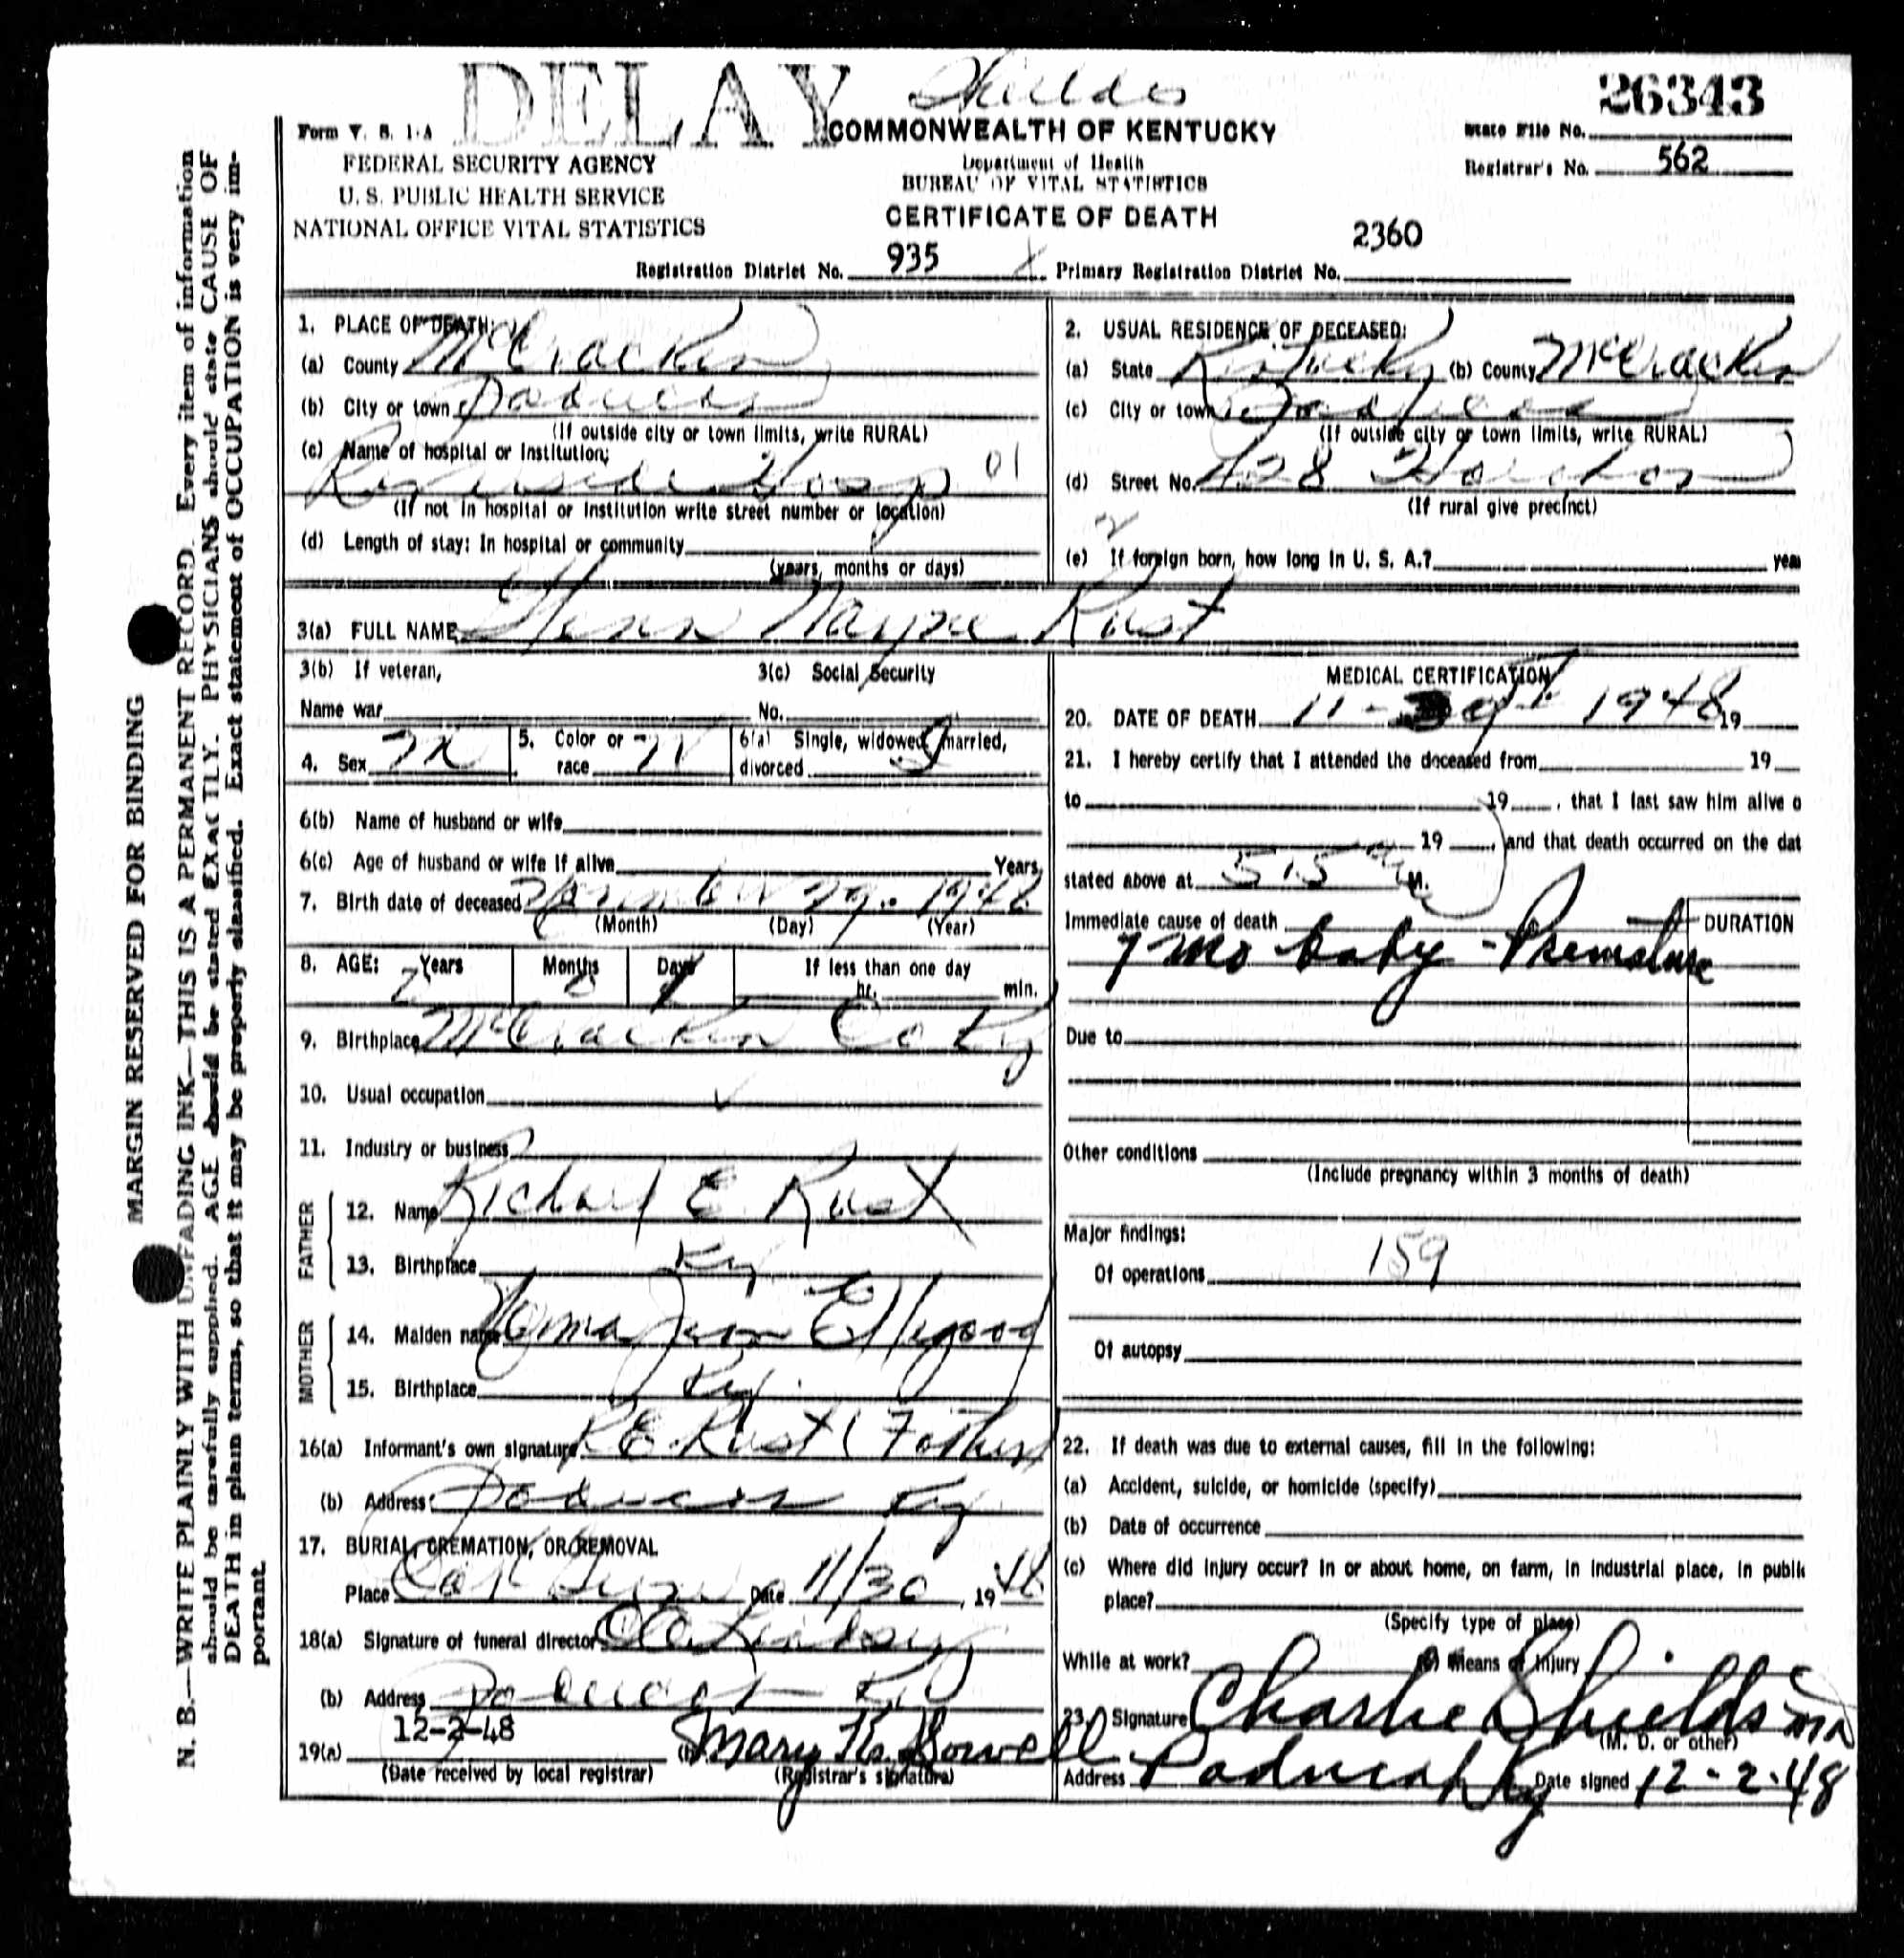 DELAY Shields
26343
Form V. S. 1-A
COMMONWEALTH OF KENTUCKY
State File No.
FEDERAL SECURITY AGENCY
Department of Health
Registrar's No. 562
U. S. PUBLIC HEALTH SERVICE
BUREAU OF VITAL STATISTICS
NATIONAL OFFICE VITAL STATISTICS
CERTIFICATE OF DEATH
2360
Registration District No. 935 X Primary Registration District No.
MARGIN RESERVED FOR BINDING
N. B.—WRITE PLAINLY WITH UNFADING INK—THIS IS A PERMANENT RECORD. Every item of information
should be carefully supplied. AGE should be stated EXACTLY. PHYSICIANS should state CAUSE OF
DEATH in plain terms, so that it may be properly classified. Exact statement of OCCUPATION is very im-
portant.
1. PLACE OF DEATH:
(a) County McCracken
(b) City or town Paducah
(If outside city or town limits, write RURAL)
(c) Name of hospital or Institution;
Riverside Hosp 01
(If not in hospital or institution write street number or location)
(d) Length of stay: In hospital or community
(years, months or days)
2. USUAL RESIDENCE OF DECEASED:
(a) State Kentucky (b) County McCracken
(c) City or town Paducah
(If outside city or town limits, write RURAL)
(d) Street No. 428
(If rural give precinct)
(e) If foreign born, how long in U. S. A.? year
3(a) FULL NAME Wayne Rust
3(b) If veteran,
3(c) Social Security
Name war No.
4. Sex M 5. Color or race W 6(a) Single, widowed, married, divorced S
6(b) Name of husband or wife
6(c) Age of husband or wife if alive Years
7. Birth date of deceased 29. 1948
(Month) (Day) (Year)
8. AGE: Years Months Days If less than one day
hr. min.
9. Birthplace McCracken Co Ky
10. Usual occupation
11. Industry or business
FATHER
12. Name Richard E. Rust
13. Birthplace Ky
MOTHER
14. Maiden name Norma Jean Ellegood
15. Birthplace Ky.
16(a) Informant's own signature R E Rust (Father)
(b) Address Paducah Ky
17. BURIAL, CREMATION, OR REMOVAL
Place Oak Grove Date 11/30, 1948
18(a) Signature of funeral director Lindsey
(b) Address Paducah Ky
12-2-48
19(a) (b) Mary K. Sowell
(Date received by local registrar) (Registrar's signature)
MEDICAL CERTIFICATION
20. DATE OF DEATH 11- 1948 19
21. I hereby certify that I attended the deceased from 19
to 19, that I last saw him alive o
19, and that death occurred on the dat
stated above at 515 am M.
Immediate cause of death DURATION
7 mo baby - Premature
Due to
Other conditions
(Include pregnancy within 3 months of death)
Major findings:
Of operations 159
Of autopsy
22. If death was due to external causes, fill in the following:
(a) Accident, suicide, or homicide (specify)
(b) Date of occurrence
(c) Where did injury occur? In or about home, on farm, in industrial place, in public
place?
(Specify type of place)
While at work? (e) Means of Injury
23. Signature Charlie Shields MD
(M. D. or other)
Address Paducah Ky Date signed 12-2-48